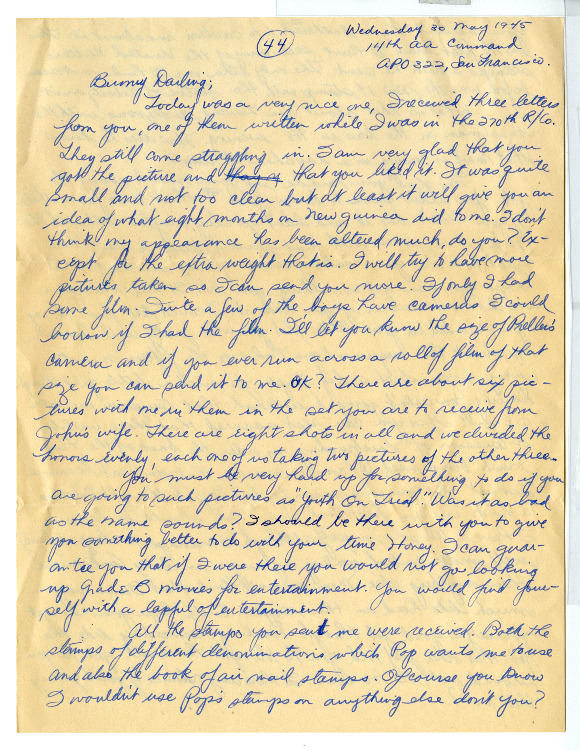 44
Wednesday 30 May 1945
14th aa Command
APO 322, San Francisco.
Bunny Darling;
Today was a very nice one, I received three letters
from you, one of them written while I was in the 270th R/Co.
They still come straggling in. I am very glad that you
got the picture and that you liked it. It was quite
small and not too clear but at least it will give you an
idea of what eight months on New Guinea did to me. I don't
think my appearance has been altered much, do you? Ex-
cept for the extra weight that is. I will try to have more
pictures taken so I can send you more. If only I had
some film. Quite a few of the boys have cameras I could
borrow if I had the film. I'll let you know the size of
camera and if you ever run across a roll of film of that
size you can send it to me. OK? There are about six pic-
tures with me in them in the set you are to receive from
John's wife. There are eight shots in all and we divided the
honors evenly, each one of us taking two pictures of the other three.
You must be very hard up for something to do if you
are going to such pictures as "Youth On Trial". Was it as bad
as the name sounds? I should be there with you to give
you something better to do with your time Honey. I can guar-
antee you that if I were there you would not go looking
up Grade B movies for entertainment. You would find your-
self with a lapful of entertainment.
All the stamps you sent me were received. Both the
stamps of different denominations which Pop wants me to use
and also the book of air mail stamps. Of course you know
I wouldn't use Pop's stamps on anything else don't you?